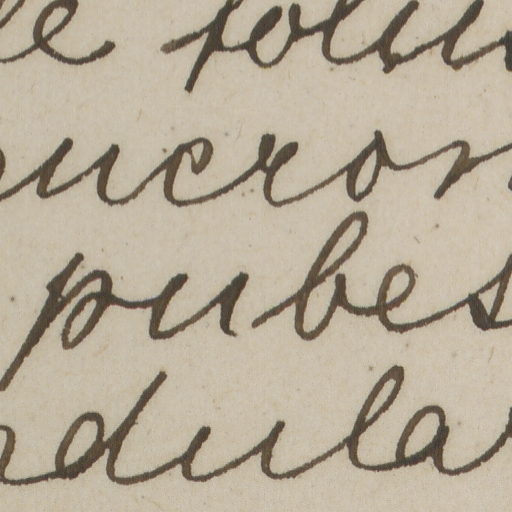 le folu
ucron
pubes
ndular